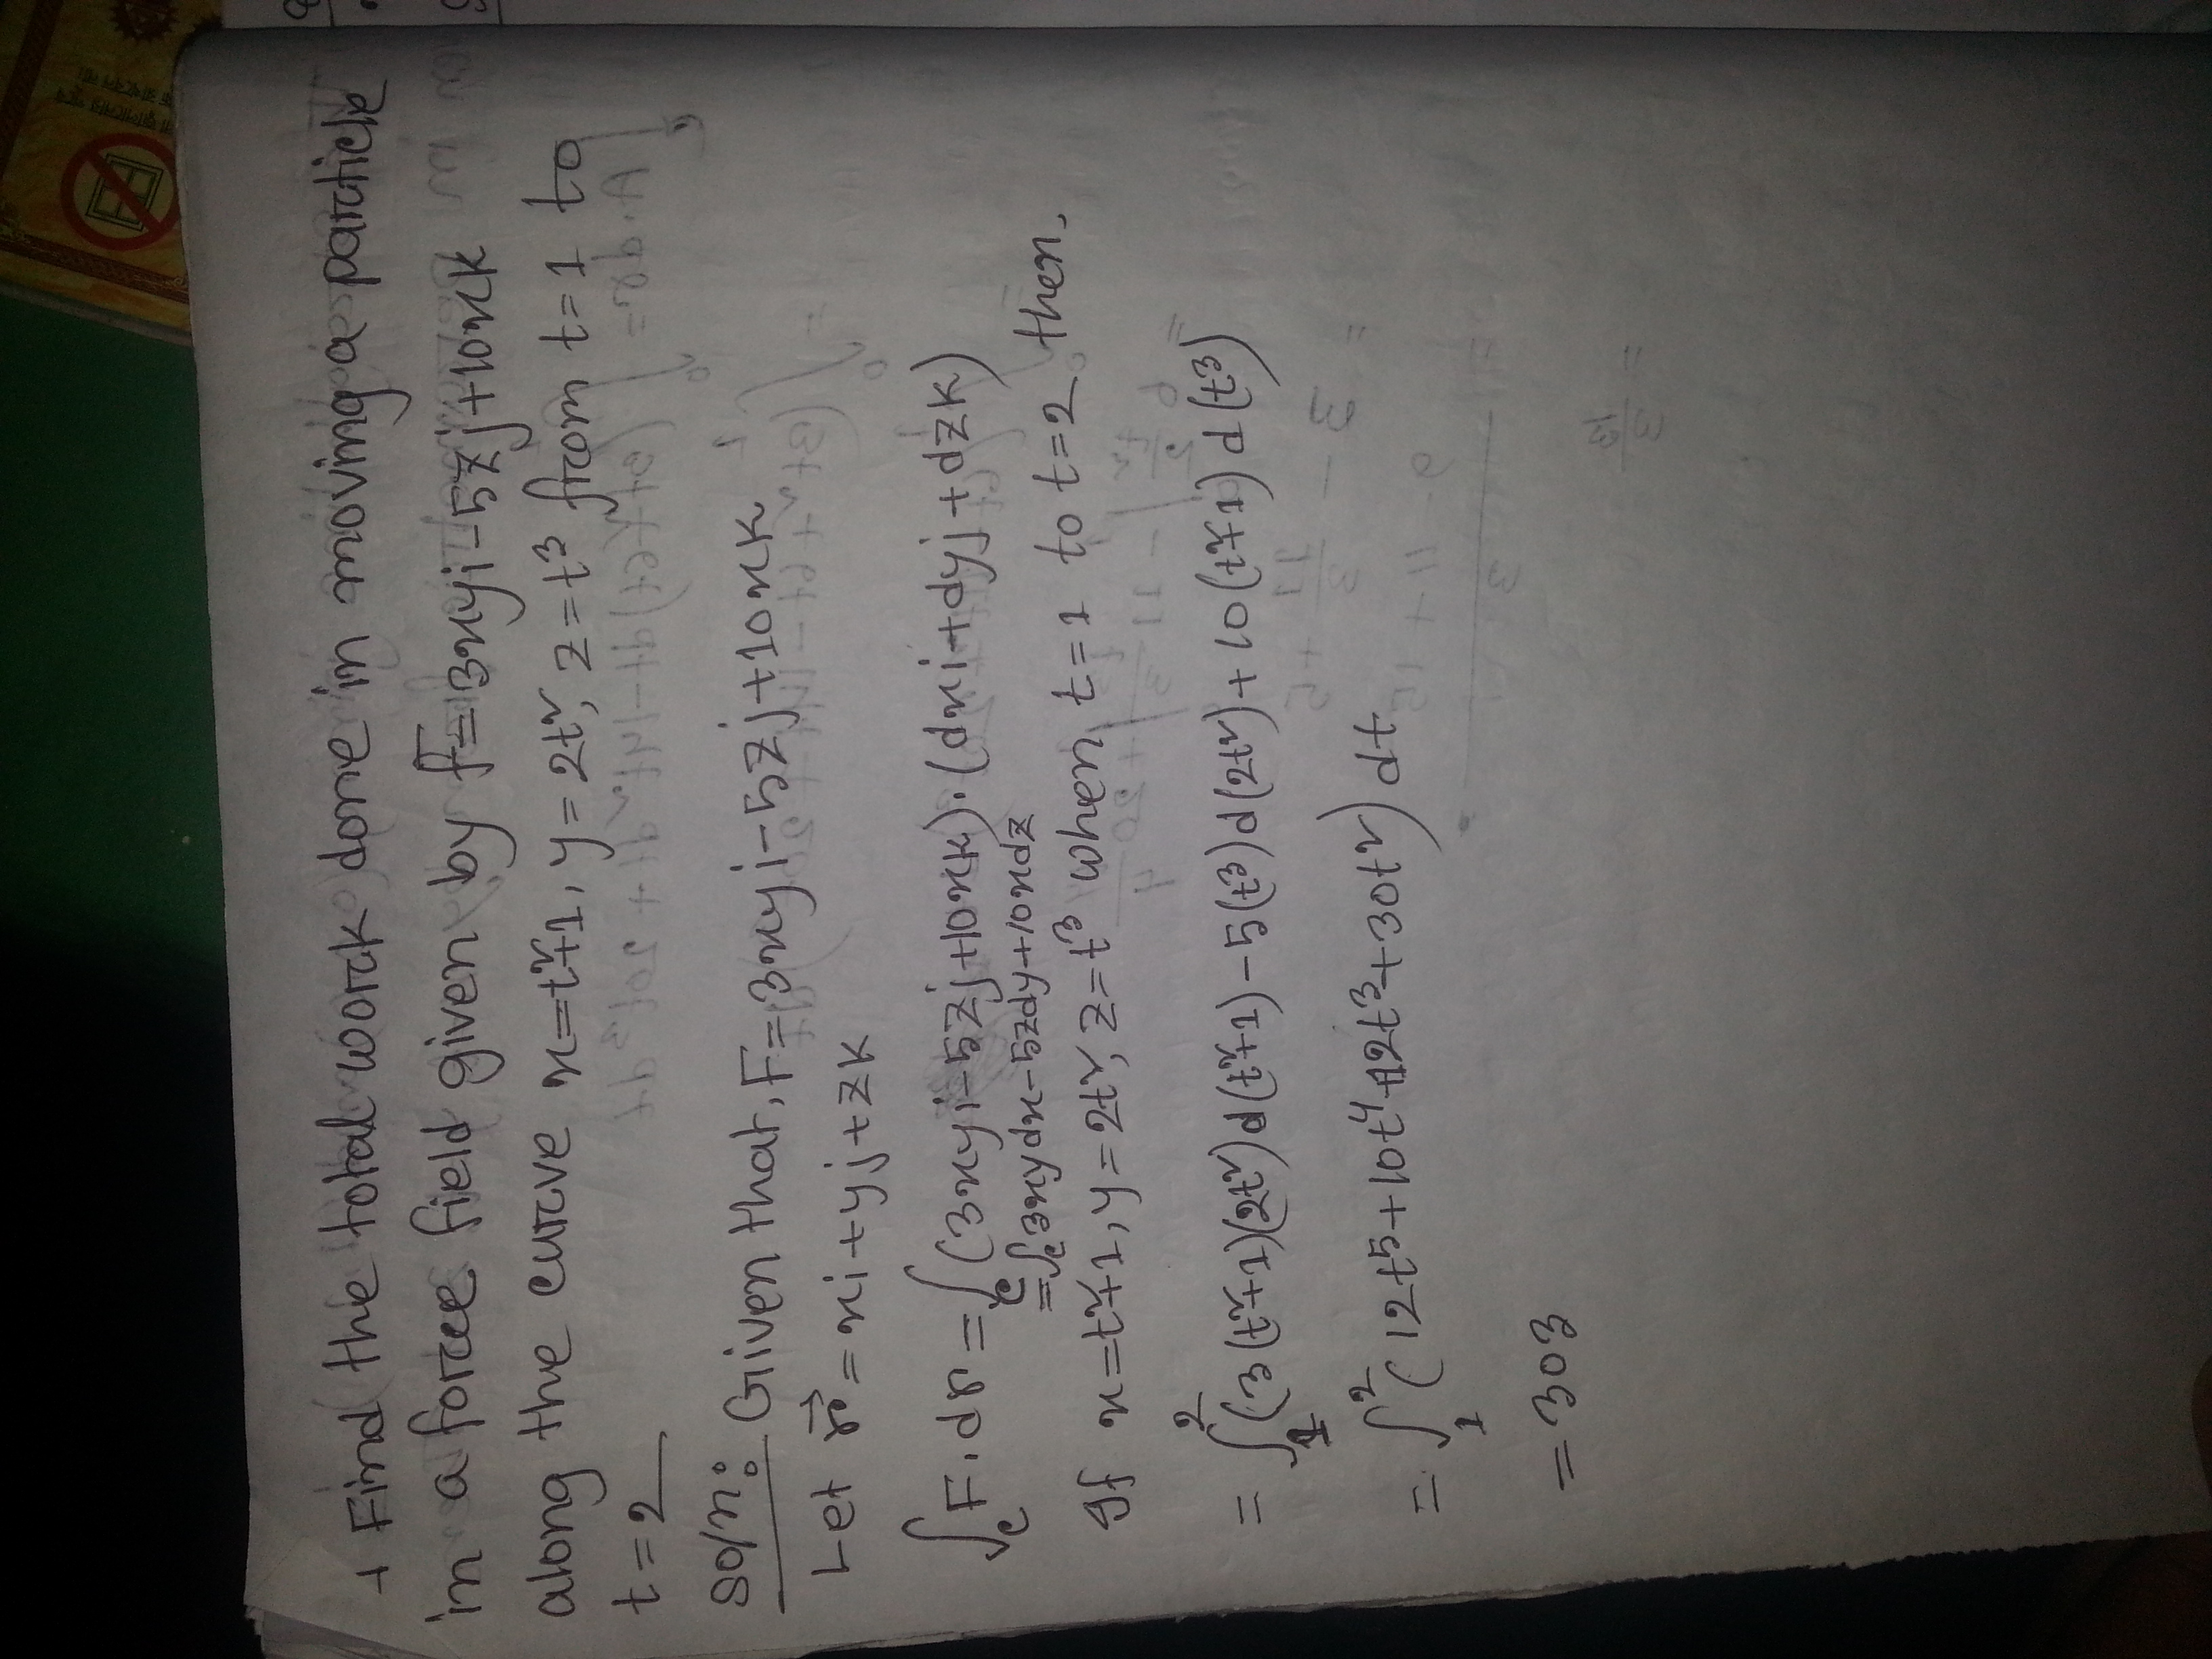 + Find the total worck done in moving a parcticle
in a forcce field given by F=3xyi-5zj+10xk
along the curcve x=t²+1, y=2t², z=t³ frcom t=1 to
t=2
Soln: Given that, F=3xyi-5zj+10xk
Let r⃗=xi+yj+zk
∫c F.dr=∫c(3xyi-5zj+10xk).(dxi+dyj+dzk)
=∫c 3xydx-5zdy+10xdz
If x=t²+1, y=2t², z=t³ when t=1 to t=2 then,
=∫₁²(3(t²+1)(2t²)d(t²+1)-5(t³)d(2t²)+10(t²+1)d(t³)
=∫₁²(12t⁵+10t⁴+12t³+30t²)dt
=303